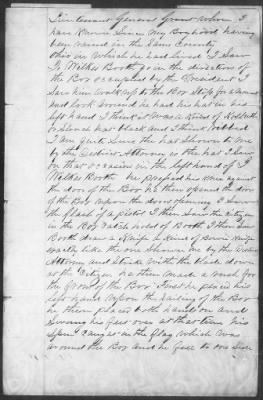 Lieutenant General Grant whom I
have known since my boyhood having
been raised in the same County
Ohio in which he had lived I saw
J. Wilkes Booth go in the direction of
the Box occupied by the President I
saw him walk up to the Box stop for a moment
and look around he had his hat in his
left hand I think it was a kind of
or Slouch hat black and I think
I am quite sure the hat shown to me
by the District Attorney is the hat I saw
on that occasion in the left hand of J
Wilkes Booth he pressed his knee against
the door of the Box & then opened the door
of the Box upon the door opening I saw
the flash of a pistol I then saw the citizen
in the Box catch hold of Booth I then saw
Booth draw a Knife a kind of
like the one shown me by the District
Attorney and strike with the blade down
at the Citizen he then made a rush for
the front of the Box first he placed his
left hand upon the railing of the Box
he then placed both hand on and
swung his feet over at that time his
Spur caught in the flag which was
around the Box and he fell to one side